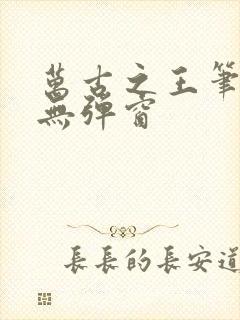 萬古之王筆
無彈窗
長長的長安道